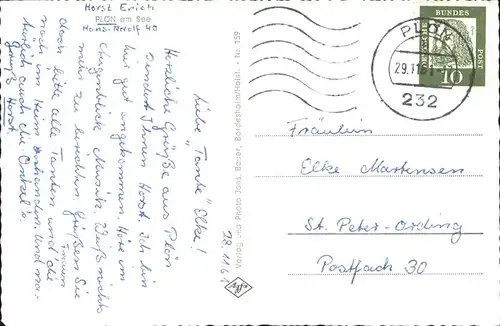 Horst Erich
PLÖN am See
Hans-Adolf 40
Liebe "Tante" Elke!
Herzliche Grüße aus Plön
sendet Ihnen Horst. Ich bin
hier gut angekommen. Höre im
Augenblick Musik. Weiß nichts
mehr zu berichten. Grüßen Sie
doch bitte alle Tanten und die Frauen
noch im Heim vorhanden. Und na-
türlich auch die Onkel's.
Gruß Horst.
28.11.61
Verlag und Photo Jons. Bauer, Bordesholm/Holst. - Nr. 159
PLÖN
29.11.61
232
DEUTSCHE
BUNDES
POST
10
Fräulein
Elke Martensen
St. Peter-Ording
Postfach 30